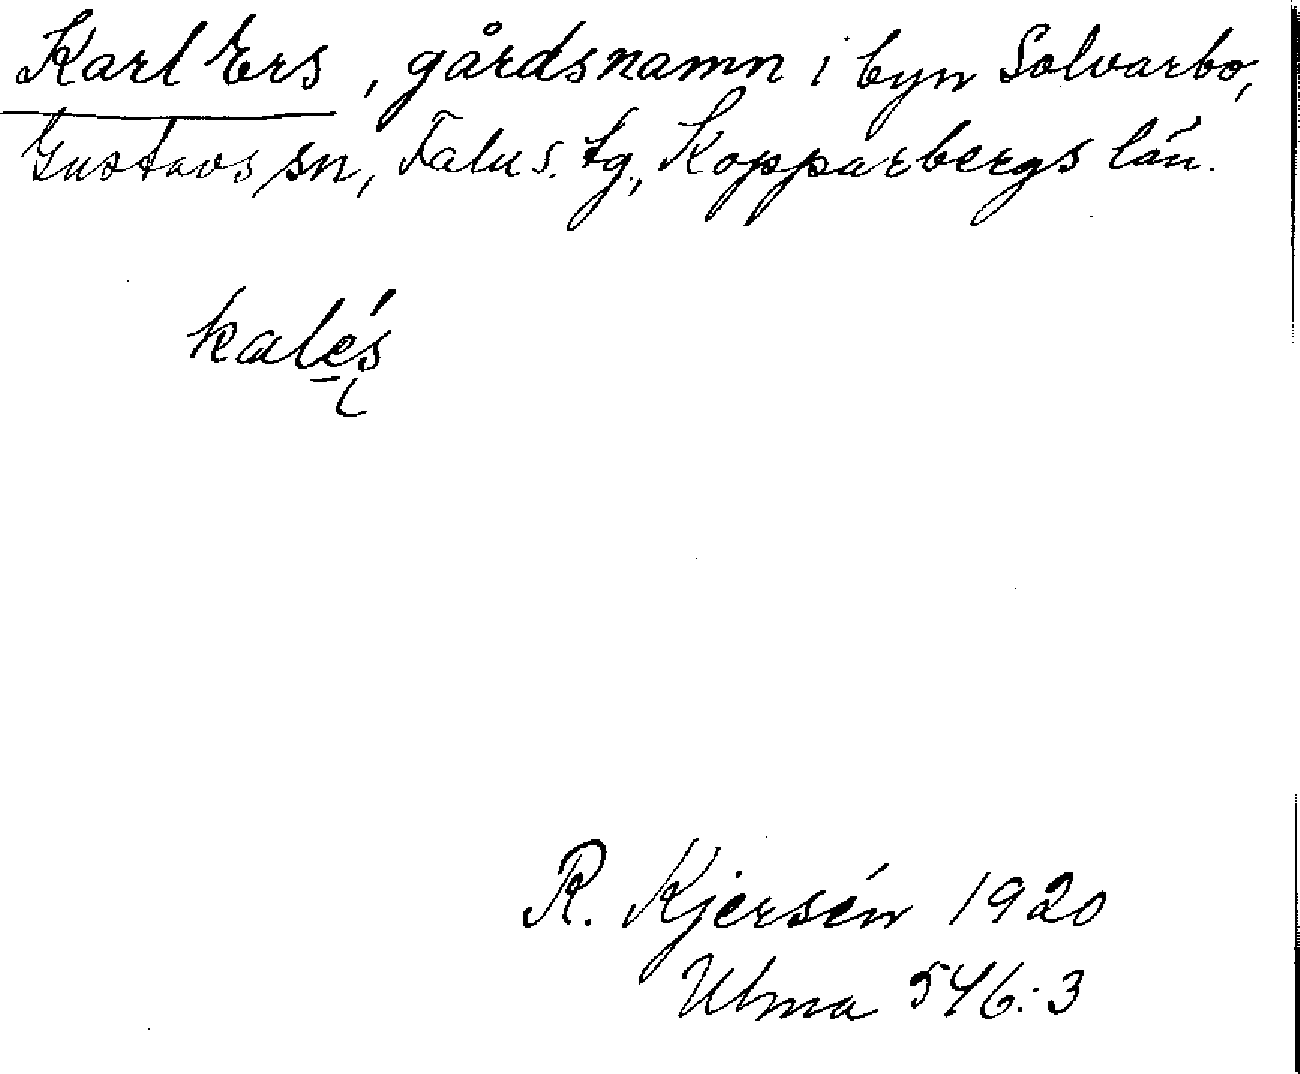 Karl Ers, gårdsnamn i byn Solvarbo,
Gustavs sn, Falu s. tg., Kopparbergs län.
kalés
R. Kjersén 1920
Ulma 546:3